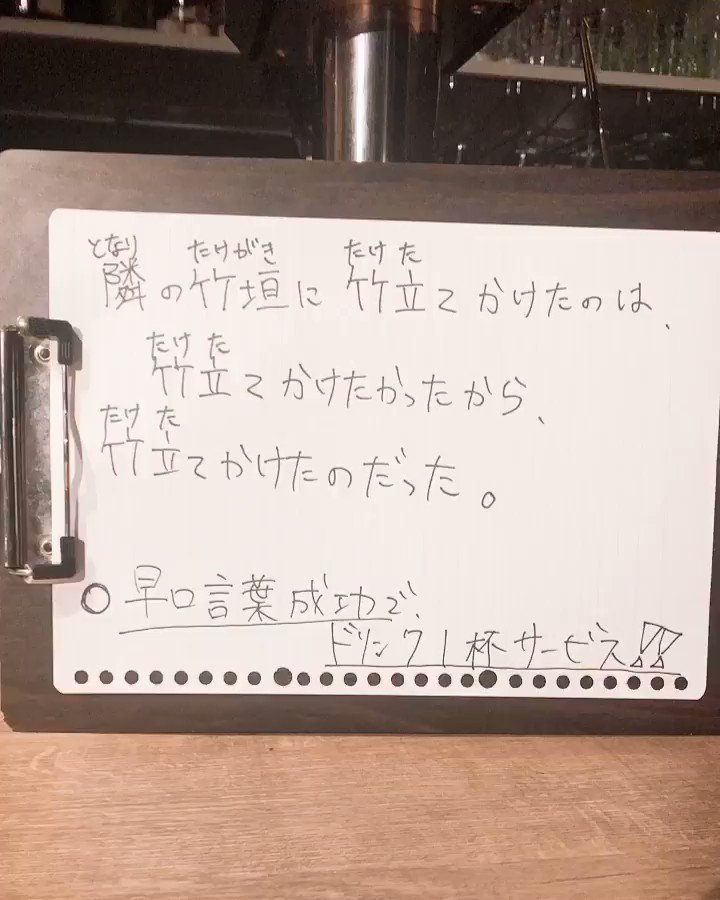 となり たけがき たけ た
隣の竹垣に竹立てかけたのは、
たけ た
竹立てかけたかったから、
たけ た
竹立てかけたのだった。
○早口言葉成功で、
ドリンク1杯サービス!!